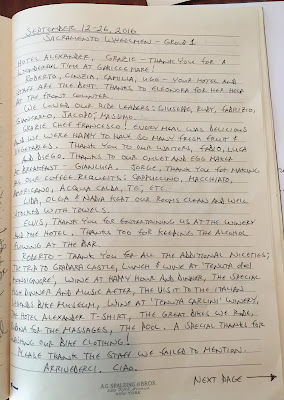 SEPTEMBER 12-26, 2016
SACRAMENTO WHEELMEN - GROUP 1
HOTEL ALEXANDER, GRAZIE - THANK YOU FOR A
WONDERFUL TIME AT GABICCE MARE!
ROBERTO, CINZIA, CAMILLA, UGO - YOUR HOTEL AND
STAFF ARE THE BEST. THANKS TO ELEONORA FOR HER HELP
AT THE FRONT COUNTER.
WE LOVED OUR RIDE LEADERS: GIUSEPPE, RUDY, FABRIZIO,
GIANFRANCO, JACOPO, MASSIMO.
GRAZIE CHEF FRANCESCO! EVERY MEAL WAS DELICIOUS
AND WE WERE HAPPY TO HAVE SO MANY FRESH FRUIT &
VEGETABLES. THANK YOU TO OUR WAITERS, FABIO, LUCA
AND DIEGO. THANKS TO OUR OMLET AND EGG MAKER
AT BREAKFAST - GIANLUCA. JORGE, THANK YOU FOR MAKING
ALL OUR COFFEE REQUESTS: CAPPUCCINO, MACCHIATO,
AMERICANO, ACQUA CALDA, TE, ETC.
LIDA, OLGA & NADIA KEPT OUR ROOMS CLEAN AND WELL
STOCKED WITH TOWELS.
ELVIS, THANK YOU FOR ENTERTAINING US AT THE WINERY
AND THE HOTEL. THANKS TOO FOR KEEPING THE ALCOHOL
FLOWING AT THE BAR.
ROBERTO - THANK YOU FOR ALL THE ADDITIONAL NICETIES;
THE TRIP TO GRADARA CASTLE, LUNCH & WINE AT 'TENUTA DEL
MONSIGNORE', WINE AT HAPPY HOUR AND DINNER, THE SPECIAL
DINNER AND MUSIC AFTER, THE VISIT TO THE ITALIAN
BIKE MUSEUM, WINE AT 'TENUTA CARLINI' WINERY,
THE HOTEL ALEXANDER T-SHIRT, THE GREAT BIKES WE RODE,
FOR THE MASSAGES, THE POOL. A SPECIAL THANKS FOR
WASHING OUR BIKE CLOTHING!
PLEASE THANK THE STAFF WE FAILED TO MENTION.
ARRIVEDERCI. CIAO.
NEXT PAGE →
A.G. SPALDING & BROS.
NEW YORK